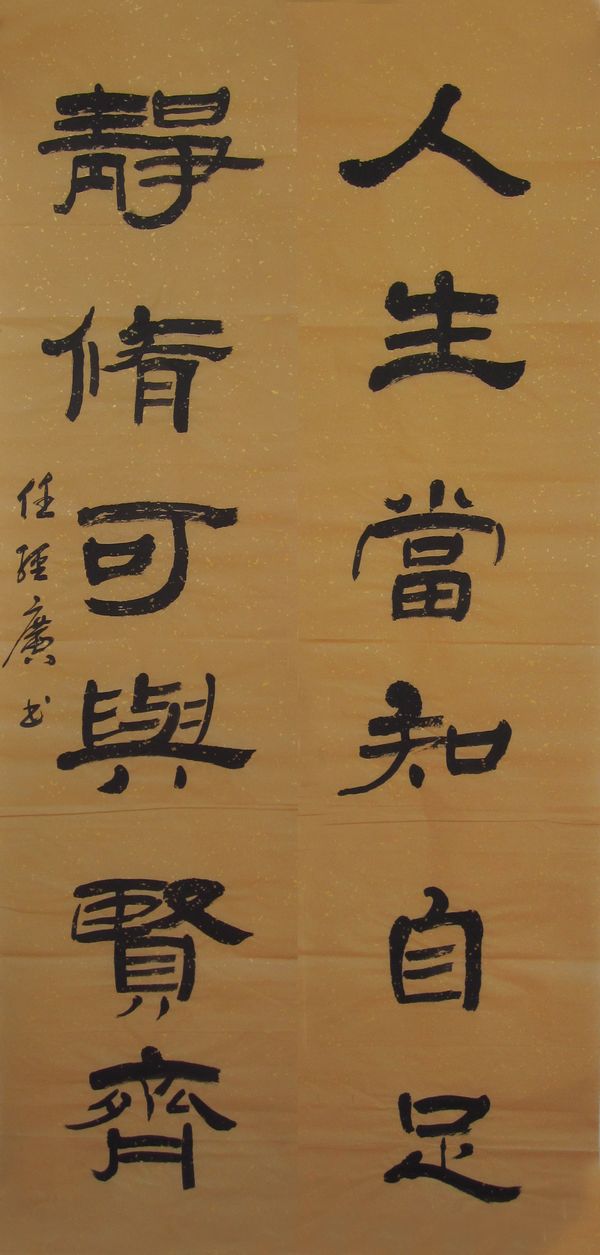 人生當知自足
靜脩可與賢齊
任經廣书